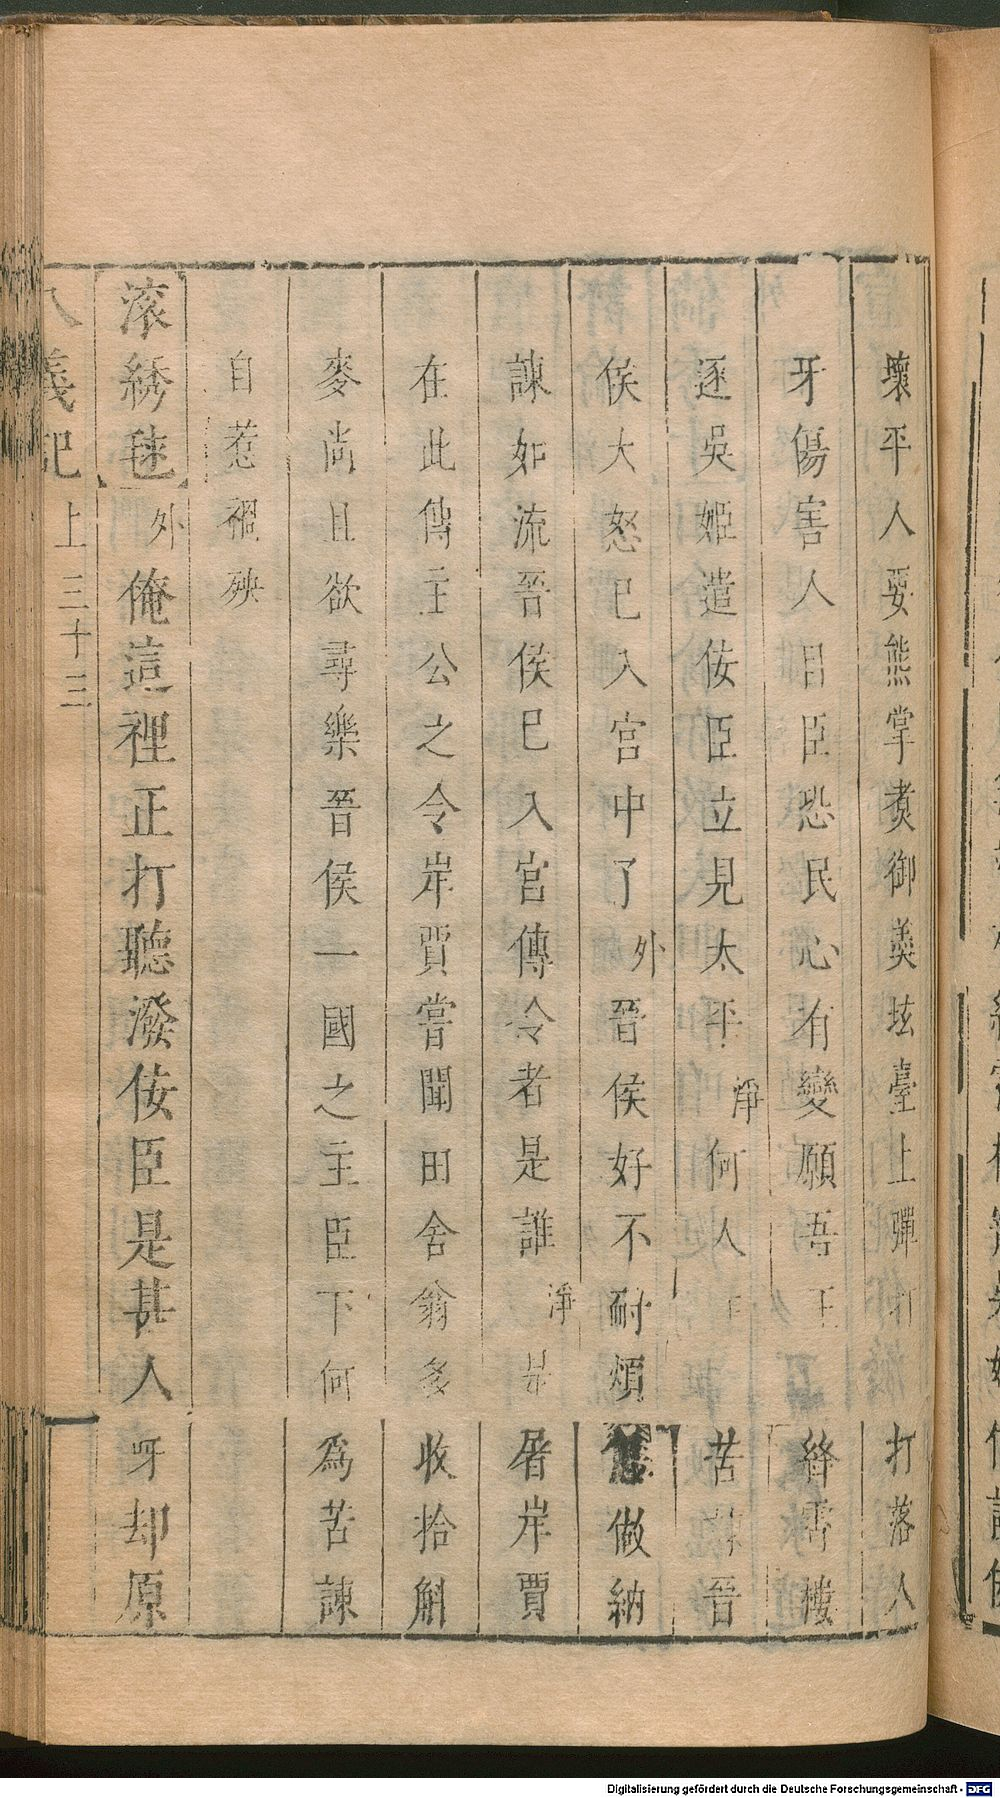 壞平人要熊掌煑御羮坛臺上彈打打落人
牙傷害人目臣恐民心有變願吾王絳霄樓
逐吳姬遣侫臣立見太平淨何人下苦諫晉
侯大怒已入宮中了外晉侯好不耐煩怎做納
諫如流吾侯已入宮傳令者是誰淨是屠岸賈
在此傳主公之令岸賈嘗聞田舍翁多收拾斛
麥尚且欲尋樂晉侯一國之主臣下何爲苦諫
自惹禍殃
滚綉毬外俺這裡正打聽潑侫臣是甚人呀却原
八義記上三十三
Digitalisierung gefördert durch die Deutsche Forschungsgemeinschaft - DFG